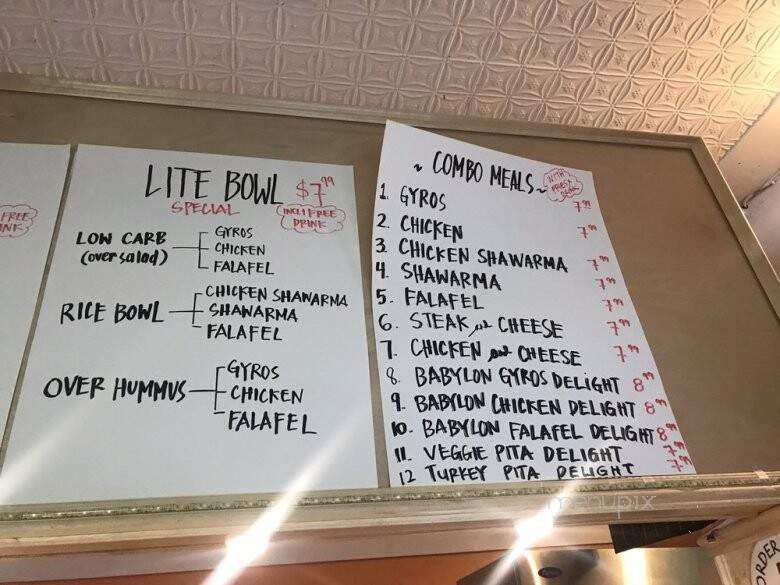 FREE
INK
LITE BOWL $7.99
SPECIAL
(INCL! FREE
DRINK
LOW CARB
(over salad)
GYROS
CHICKEN
FALAFEL
RICE BOWL
CHICKEN SHAWARMA
SHAWARMA
FALAFEL
OVER HUMMUS
GYROS
CHICKEN
FALAFEL
~ COMBO MEALS ~
WITH
1. GYROS 7.99
2. CHICKEN 7.99
3. CHICKEN SHAWARMA 7.99
4. SHAWARMA 7.99
5. FALAFEL 7.99
6. STEAK and CHEESE 7.99
7. CHICKEN and CHEESE 7.99
8. BABYLON GYROS DELIGHT 8.99
9. BABYLON CHICKEN DELIGHT 8.99
10. BABYLON FALAFEL DELIGHT 8.99
11. VEGGIE PITA DELIGHT 7.99
12 TURKEY PITA DELIGHT 7.99
menupix
RDER